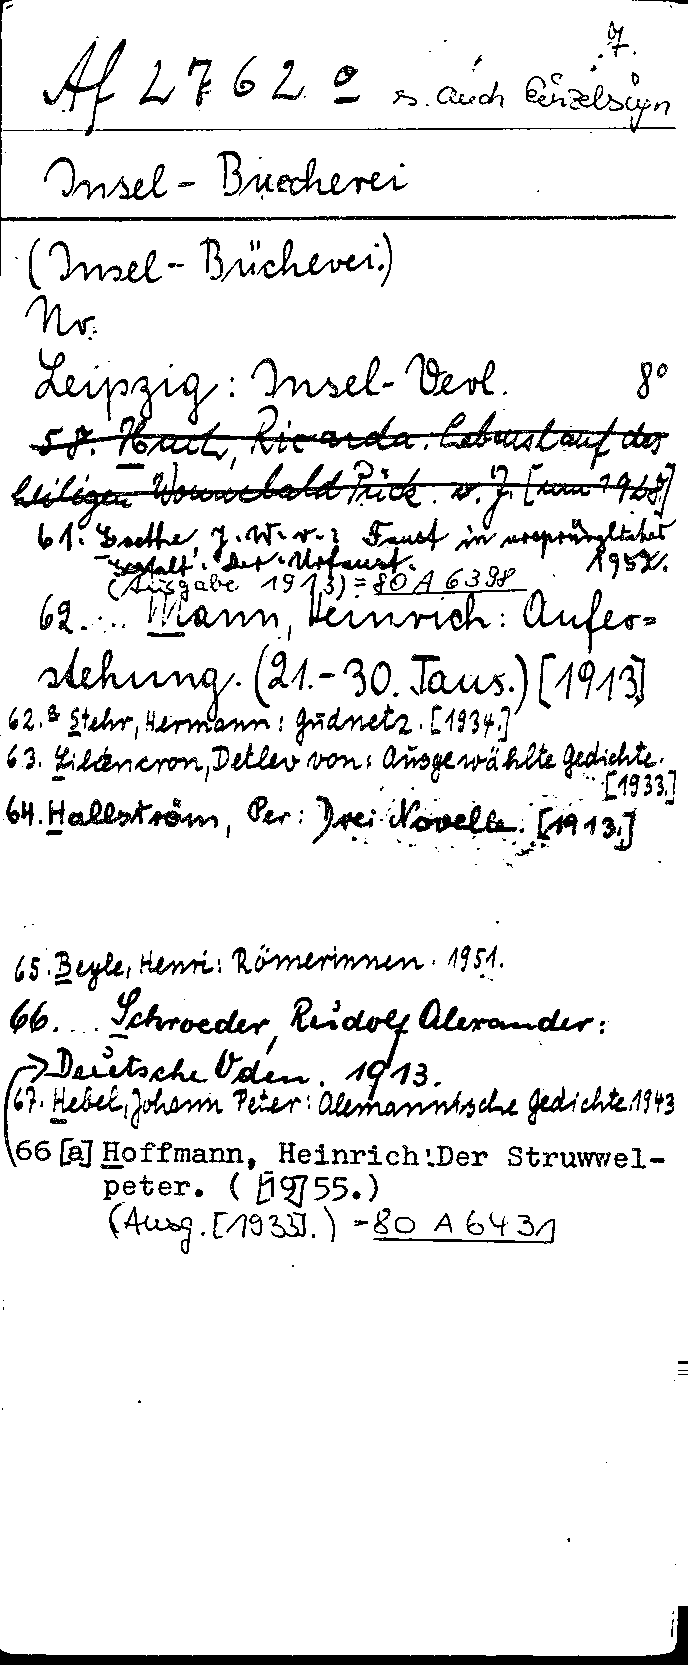 7.
Af 2762 o s. auch Einzelsign
Insel-Buecherei
(Insel-Bücherei.)
Nr.
Leipzig: Insel-Verl. 8°
58. Huch, Ricarda. Lebenslauf des
heiligen Wonnebald Pück. o. J. [um 1928]
61. Goethe, J. W. v.: Faust in ursprünglicher
Gestalt. Der Urfaust. 1952.
(Ausgabe 1913) = 80 A 6398
62. ... Mann, Heinrich: Aufer=
stehung. (21.-30. Taus.) [1913]
62.a Stehr, Hermann: Gudnetz. [1934.]
63. Liliencron, Detlev von: Ausgewählte Gedichte.
[1933.]
64. Hallström, Per: Drei Novelle. [1913.]
65. Beyle, Henri: Römerinnen. 1951.
66. ... Schroeder, Rudolf Alexander:
Deutsche Oden. 1913.
67. Hebel, Johann Peter: Alemannische Gedichte. 1943
66 [a] Hoffmann, Heinrich: Der Struwwel-
peter. ( [19]55.)
(Ausg. [1933].) = 80 A 6431